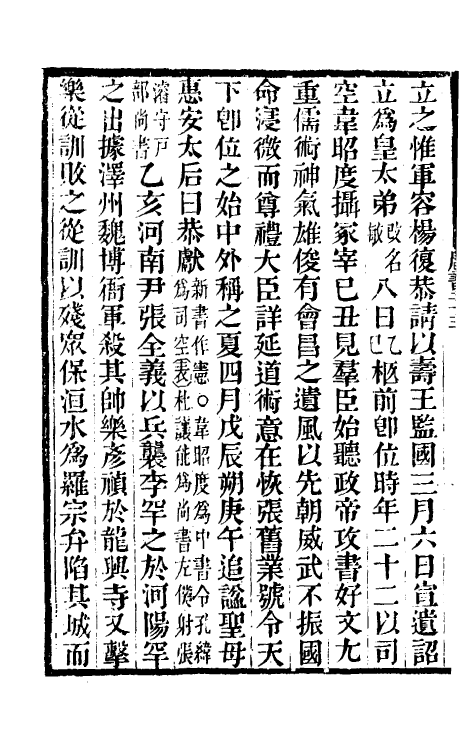 立之惟軍容楊復恭請以壽王監國三月六日宣遺詔
立爲皇太弟改名敏八日乙巳柩前卽位時年二十二以司
空韋昭度攝冢宰已丑見羣臣始聽政帝攻書好文尢
重儒術神氣雄俊有會昌之遺風以先朝威武不振國
命寖微而尊禮大臣詳延道術意在恢張舊業號令天
下卽位之始中外稱之夏四月戊辰朔庚午追諡聖母
惠安太后曰恭獻新書作憲○韋昭度爲中書令孔緯爲司空表杜讓能爲尚書左僕射張
濬守戸部尚書乙亥河南尹張全義以兵襲李罕之於河陽罕
之出據澤州魏博衙軍殺其帥樂彥禎於龍興寺又擊
樂從訓敗之從訓以殘眾保洹水爲羅宗弁陷其城而